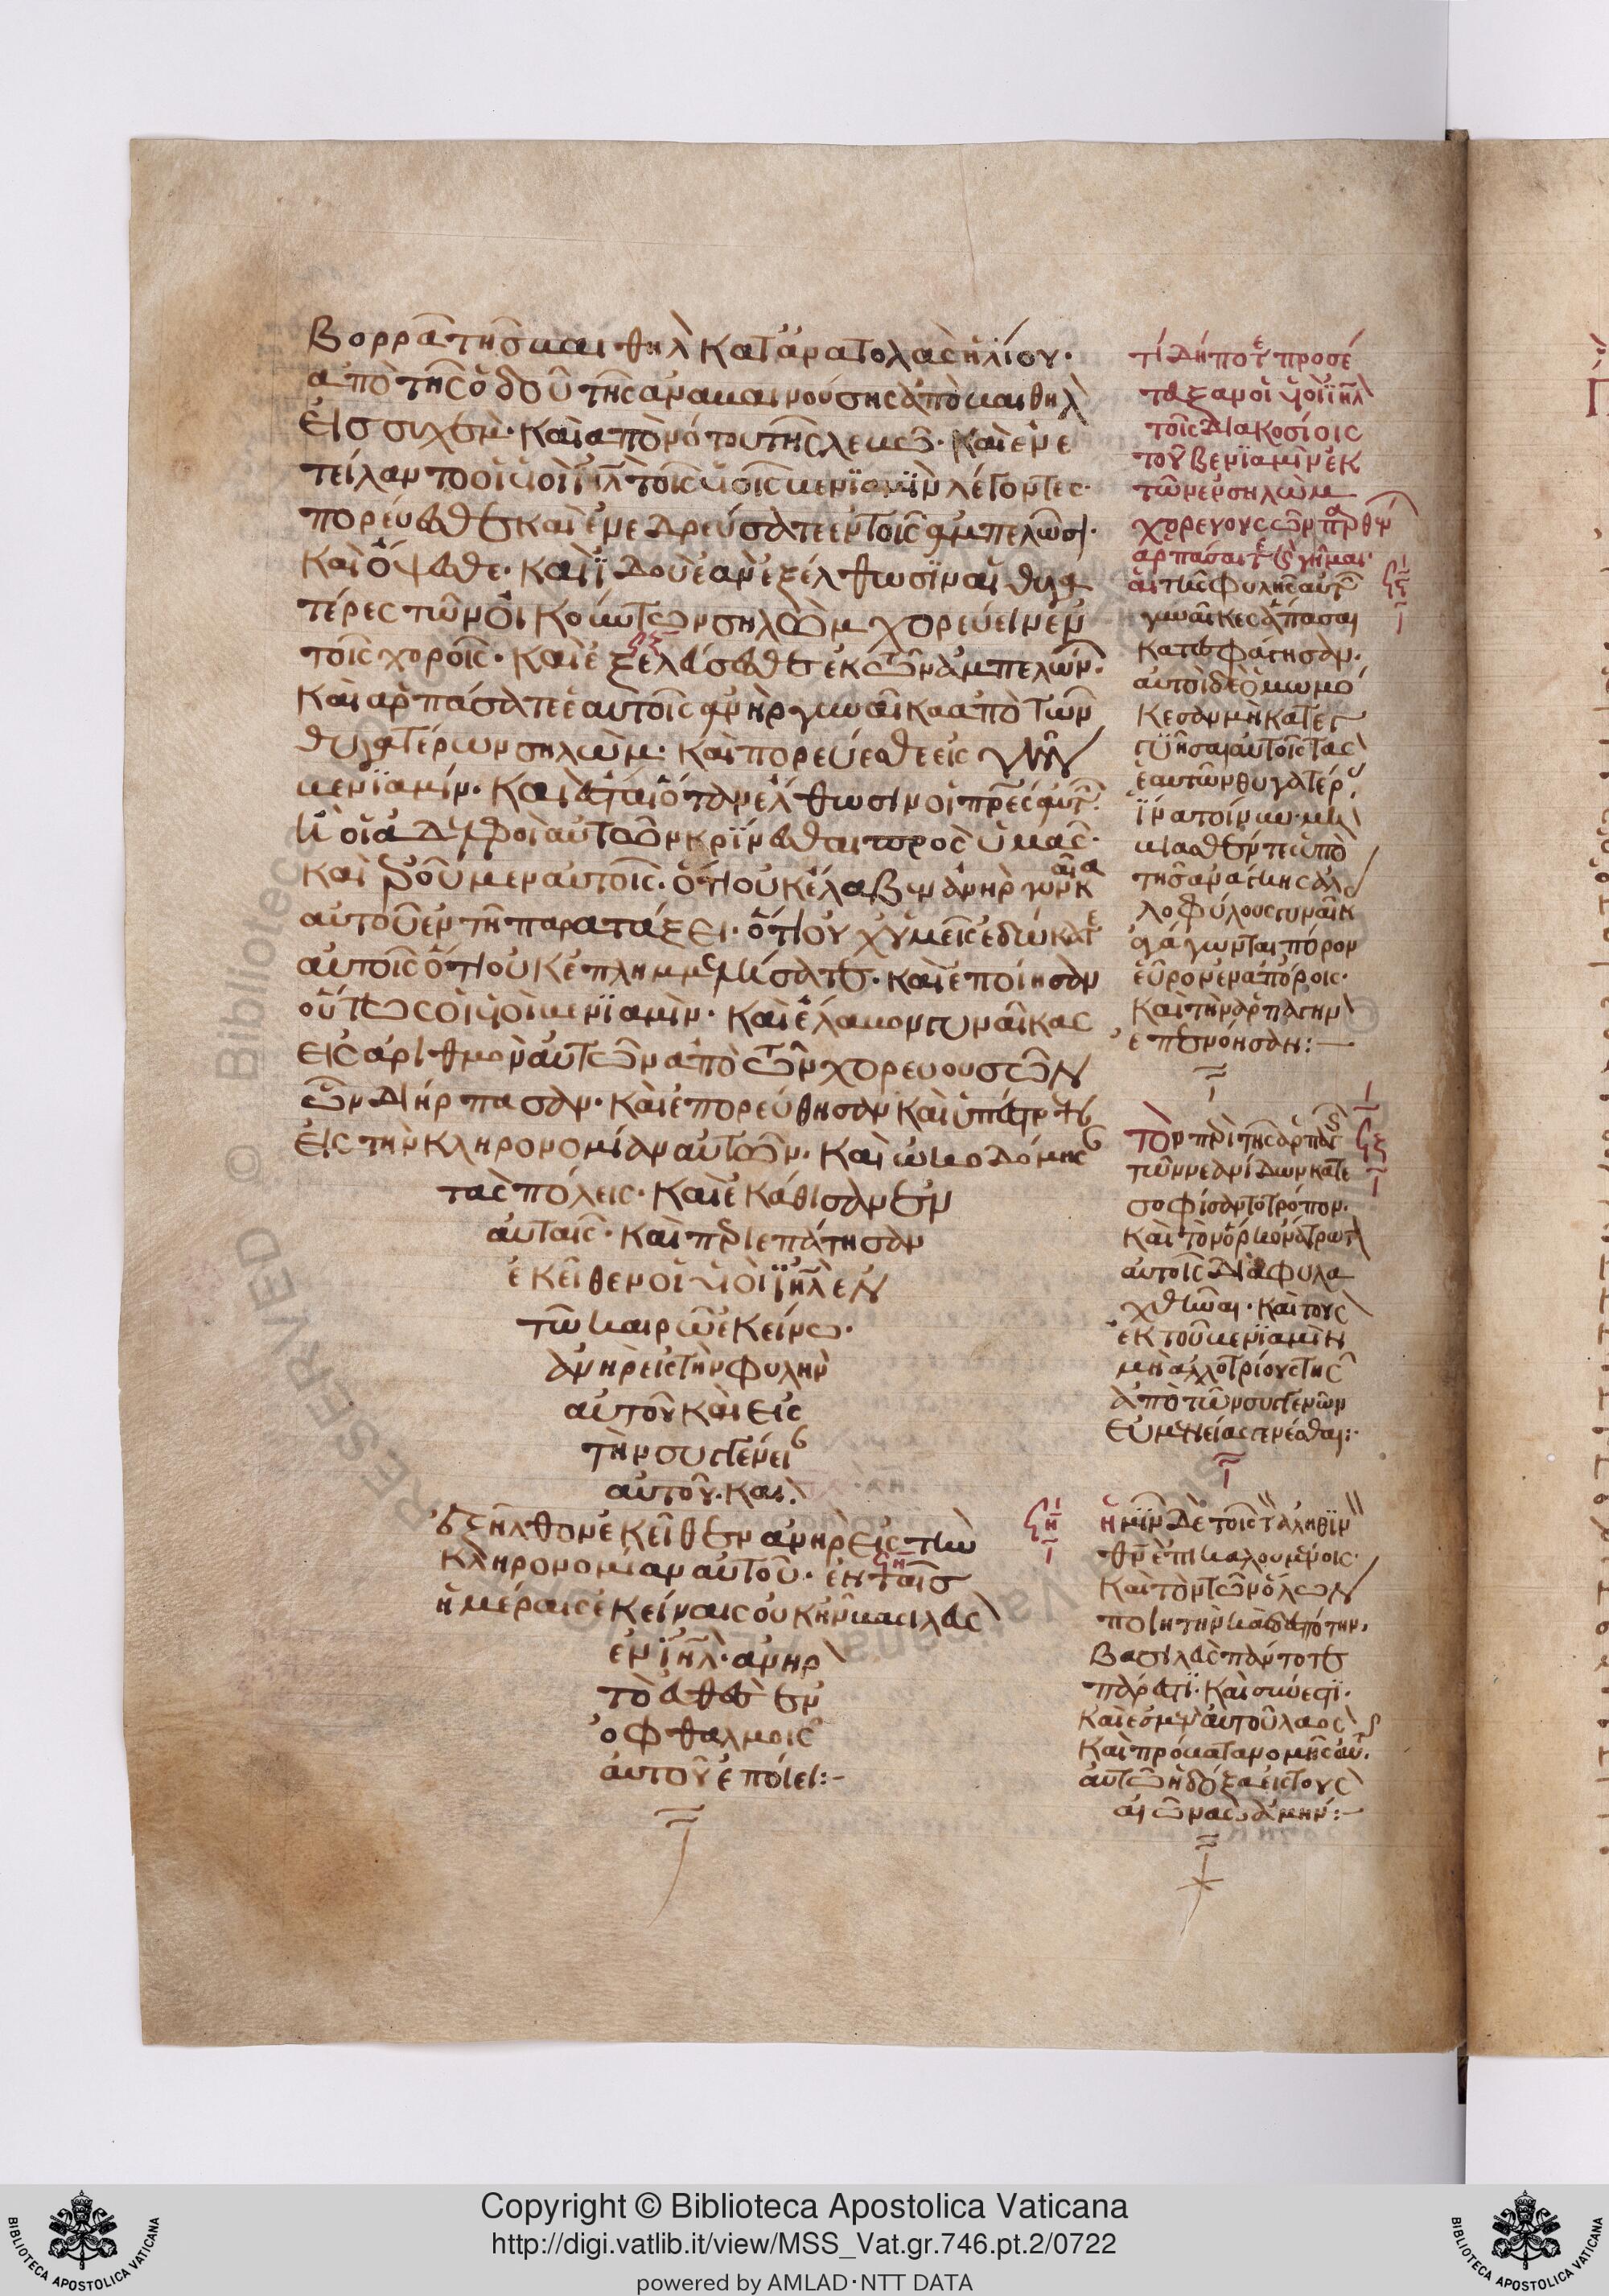 βορρᾶ τῆς βαιθηλ κατὰ ἀνατολὰς ἡλίου·
ἀπὸ τῆς ὁδοῦ τῆς ἀναβαινούσης ἀπὸ βαιθηλ
εἰς συχὲμ· καὶ ἀπὸ νότου τῆς λεβω· καὶ ἐνε
τείλαντο οἱ υἱοὶ ιηλ τοῖς υἱοῖς βενϊαμϊν λέγοντες·
πορεύεσθε καὶ ἐνεδρεύσατε ἐν τοῖς ἀμπελῶσι·
καὶ ὄψεσθε· καὶ ϊδοὺ ἐὰν ἐξέλθωσϊν αἱ θυγα
τέρες τῶν οἰκούντων σηλὼμ χορεύειν ἐν
τοῖς χοροῖς· καὶ ἐξελεύσεσθε ἐκ τῶν ἀμπελώνων·
καὶ ἁρπάσατε ἑαυτοῖς ἀνὴρ γυναῖκα ἀπὸ τῶν
θυγατέρων σηλὼμ· καὶ πορεύεσθε εἰς γῆν
βενϊαμίν· καὶ ἔσται ὅταν ἔλθωσιν οἱ πρες αὐτῶν
ἢ οἱ ἀδελφοὶ αὐτῶν κρίνεσθαι πρὸς ὑμᾶς·
καὶ ἐροῦμεν αὐτοῖς· ὅτι οὐκ ἔλαβεν ἀνὴρ γυναῖκα
αὐτοῦ ἐν τῇ παρατάξει· ὅτι οὐχ ὑμεῖς ἐδώκατε
αὐτοῖς ὅτι οὐκ ἐπλημμελήσατε· καὶ ἐποίησαν
οὕτως οἱ υἱοὶ βενϊαμὶν· καὶ ἔλαβον γυναῖκας
εἰς ἀριθμὸν αὐτῶν ἀπὸ τῶν χορευουσῶν
ὧν διήρπασαν· καὶ ἐπορεύθησαν καὶ ὑπέστρεψαν
εἰς τὴν κληρονομίαν αὐτῶν· καὶ ὠκοδόμησαν
τὰς πόλεις· καὶ ἐκάθισαν ἐν
αὐταῖς· καὶ περιεπάτησαν
ἐκεῖθεν οἱ υἱοὶ ϊηλ ἐν
τῶ καιρῶ ἐκείνω·
ἀνὴρ εἰς τὴν φυλὴν
αὐτοῦ καὶ εἰς
τὴν συγγένειαν
αὐτοῦ· καὶ
ἐξῆλθον ἐκεῖθεν ἀνὴρ εἰς τὴν
κληρονομίαν αὐτοῦ· ἐν ταῖς
ἡμέραις ἐκείναις οὐκ ἦν βασιλεὺς
ἐν ϊηλ· ἀνὴρ
τὸ εὐθὲς ἐν
ὀφθαλμοῖς
αὐτοῦ ἐποίει:-
τί δήποτε προσέ
ταξαν οἱ υἱοὶ ϊηλ
τοῖς διακοσίοις
τοῦ βενϊαμὶν ἐκ
τῶν ἐν σηλὼμ
χορευουσῶν παρθένων
ἁρπάσαι τε καὶ γῆμαι·
αἱ τῆς φυλῆς αὐτῶν
γυναῖκες ἅπασαι
κατεσφάγησαν·
αὐτοὶ δὲ ὀμωμό
κεσαν μὴ κατεγ
γυῆσαι αὐτοῖς τὰς
ἑαυτῶν θυγατέρας
ϊνα τοίνυν μὴ
βιασθέντες ὑπὸ
τῆς ἀνάγκης ἀλ
λοφύλους γυναῖκας
ἀγάγωνται πόρον
εὗρον ἐν ἀπόροις·
καὶ τὴν ἁρπαγὴν
ἐπενόησαν:-
τὸν περὶ τῆς ἁρπαγῆς
τῶν νεανίδων κατε
σοφίσαντο τρόπον·
καὶ τὸν ὅρκον ἄτρωτον
αὐτοῖς διαφυλα
χθῆναι· καὶ τοὺς
ἐκ τοῦ βενϊαμὶν
μὴ ἀλλοτρίους τῆς
ἀπὸ τῶν συγγενῶν
εὐμενείας γενέσθαι:·
ἡμῖν δὲ τοῖς τἀληθϊνὸν
θν ἐπικαλουμένοις·
καὶ τὸν τῶν ὅλων
ποιητὴν καὶ δεσπότην,
βασιλεὺς πάντοτε
πάρεστϊ· καὶ σύνεστϊ·
καὶ ἐσμὲν αὐτοῦ λαὸς
καὶ πρόβατα νομῆς αὐτοῦ·
αὐτῶ ἡ δόξα εἰς τοὺς
αἰῶνας ἀμήν:-
Copyright © Biblioteca Apostolica Vaticana
http://digi.vatlib.it/view/MSS_Vat.gr.746.pt.2/0722
powered by AMLAD·NTT DATA
BIBLIOTECA APOSTOLICA VATICANA
BIBLIOTECA APOSTOLICA VATICANA